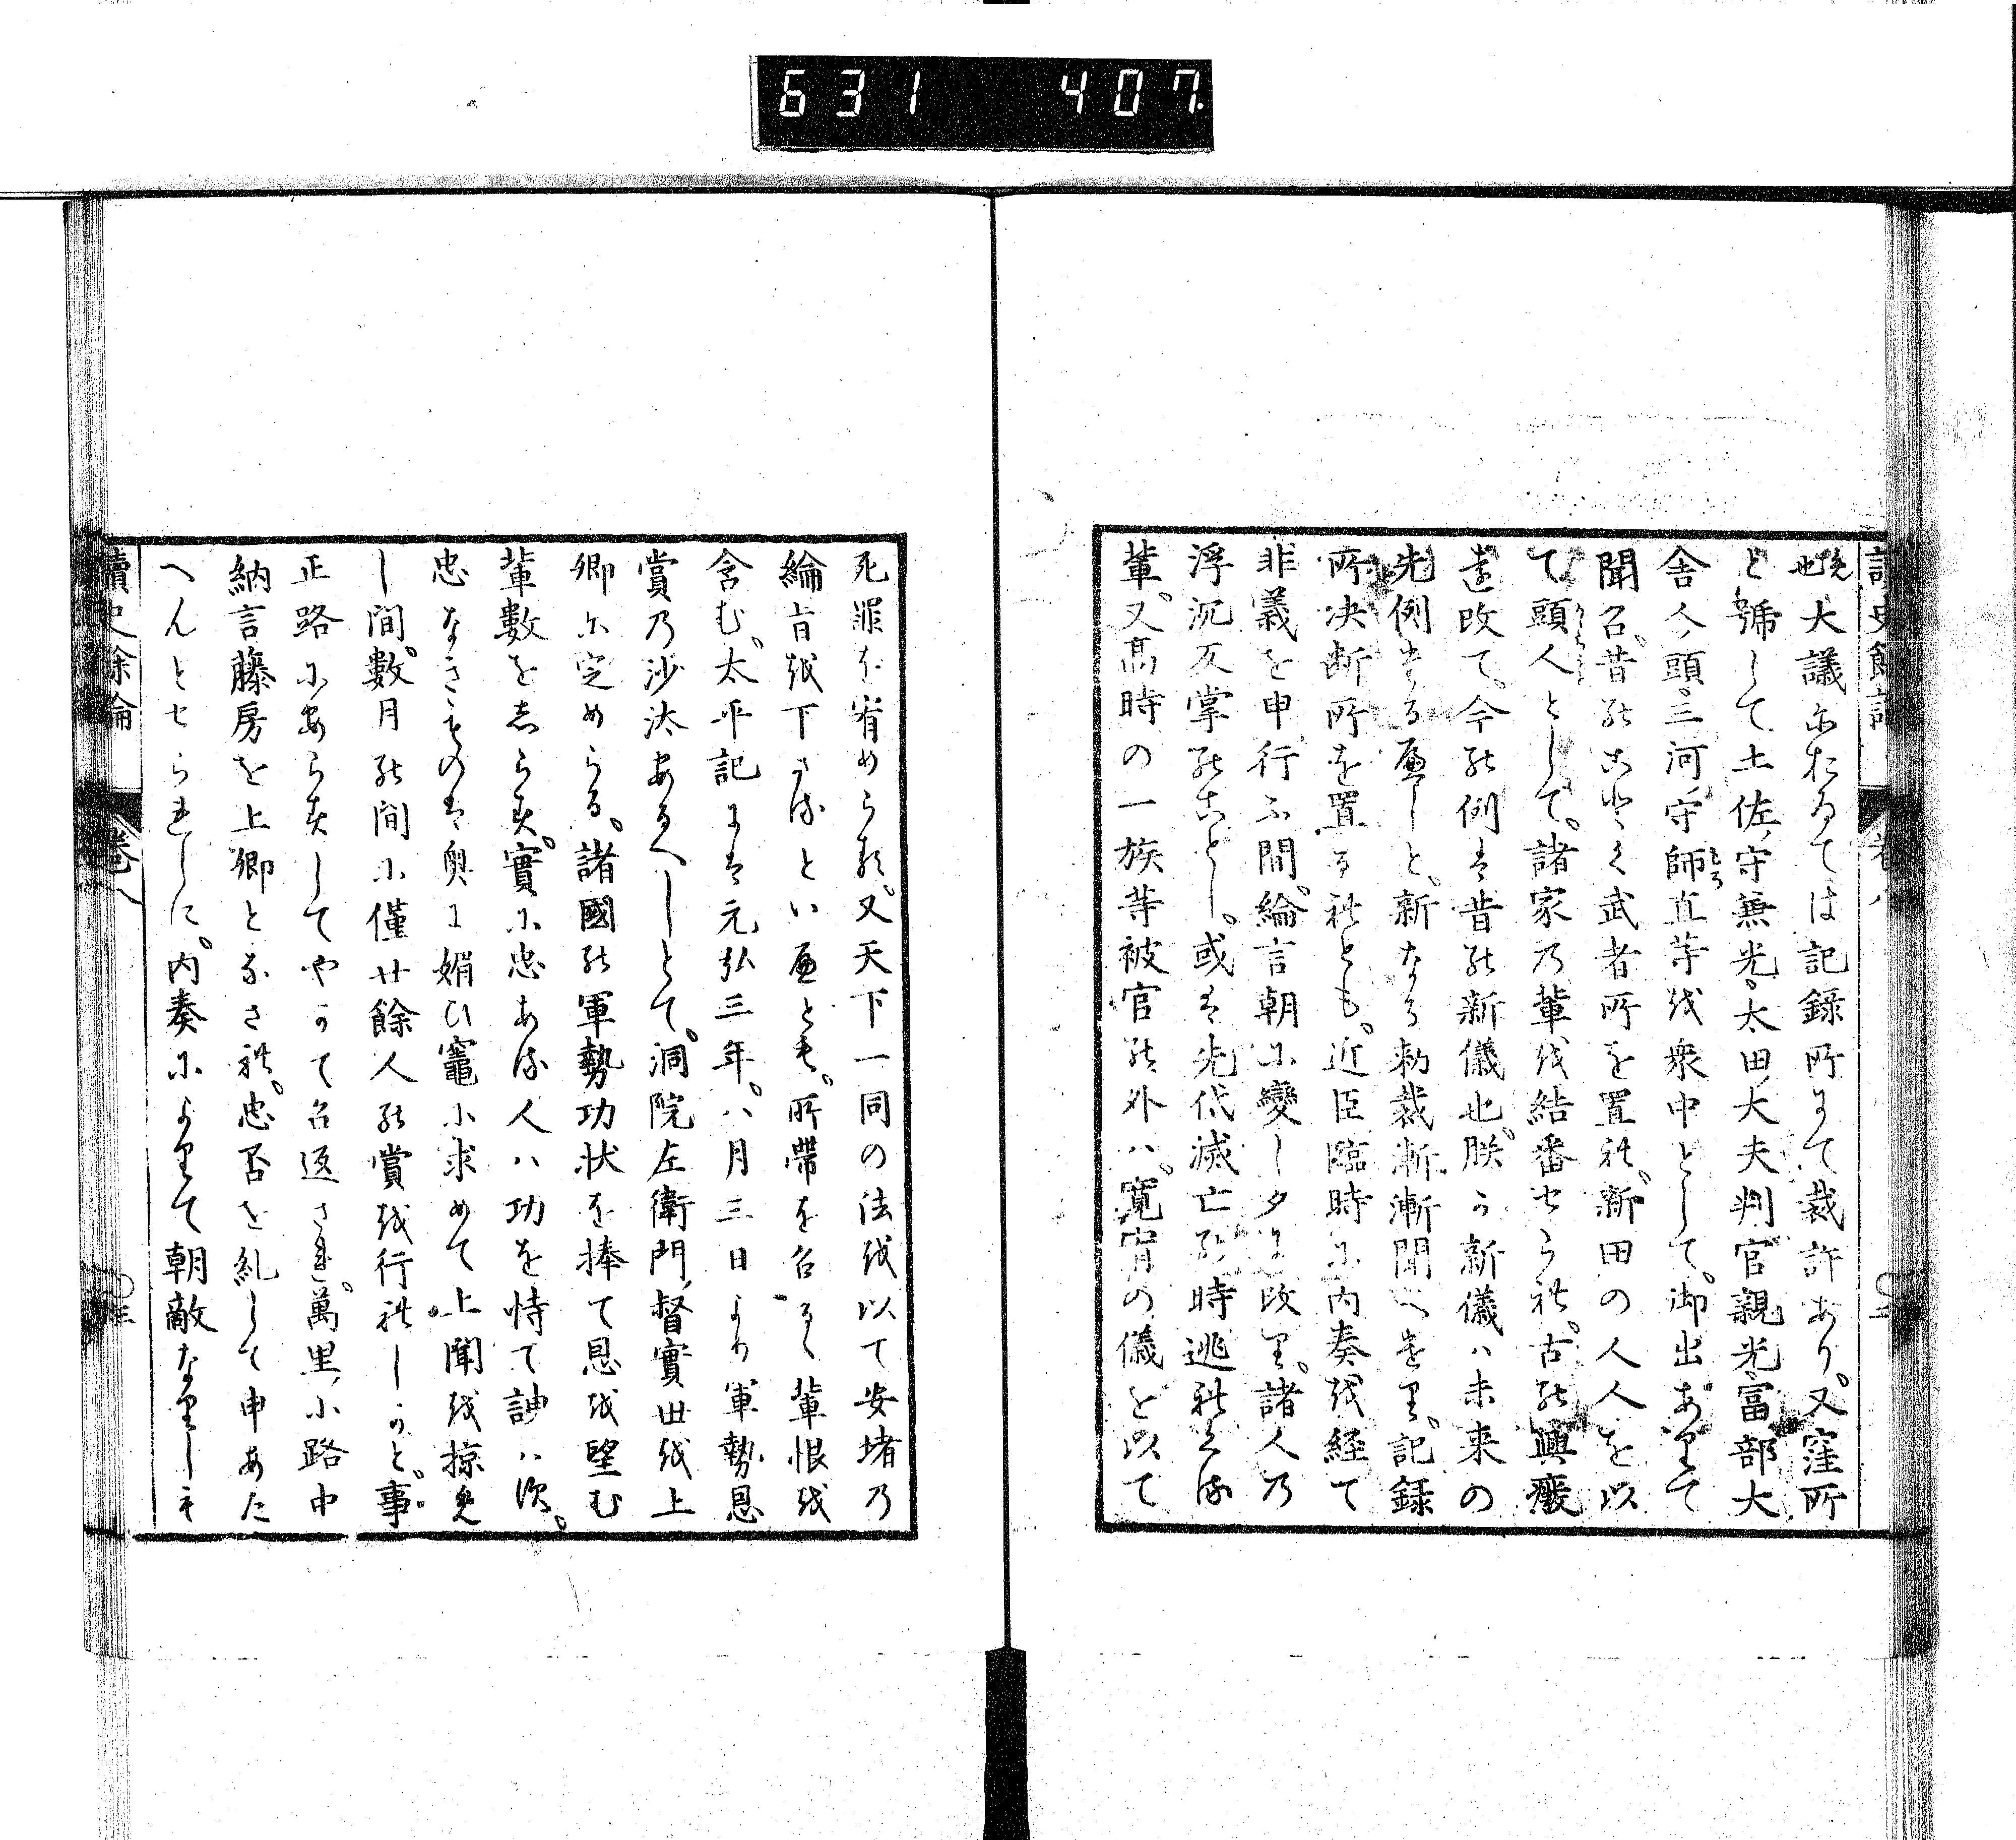 631 407
也大議においては記録所にて裁許あり又窪所
と號して土佐守兼光太田大夫判官親光冨部大
舎人頭三河守師直等を衆中として御出ありて
聞召昔のことく武者所を置れ新田の人人を以
て頭人として諸家の輩を結番せられ古の興廢
を改て今の例は昔の新儀也朕か新儀は未来の
先例たるへしと新なる勅裁漸漸聞へけり記録
所决断所を置るれとも近臣臨時に内奏を経て
非義を申行ふ間綸言朝に變し夕に改り諸人の
浮沉反掌のことし或は先代滅亡の時逃れくる
輩又高時の一族等被官の外は寛宥の儀を以て
死罪を宥めらる又天下一同の法を以て安堵の
綸旨を下さるといへとも所帯を召るゝ輩恨を
含む太平記には元弘三年八月三日より軍勢恩
賞の沙汰あるへしとて洞院左衛門督實世を上
卿に定めらる諸國の軍勢功状を捧て恩を望む
輩數をしらす實に忠ある人は功を恃て諛はす
忠なきものは奥に媚ひ竈に求めて上聞を掠め
し間數月の間に僅廿餘人の賞を行れしかと事
正路にあらすしてやかて召返され萬里小路中
納言藤房を上卿となされ忠否を糺して申あた
へんとせられしに内奏によりて朝敵なりしも
讀史餘論 巻八